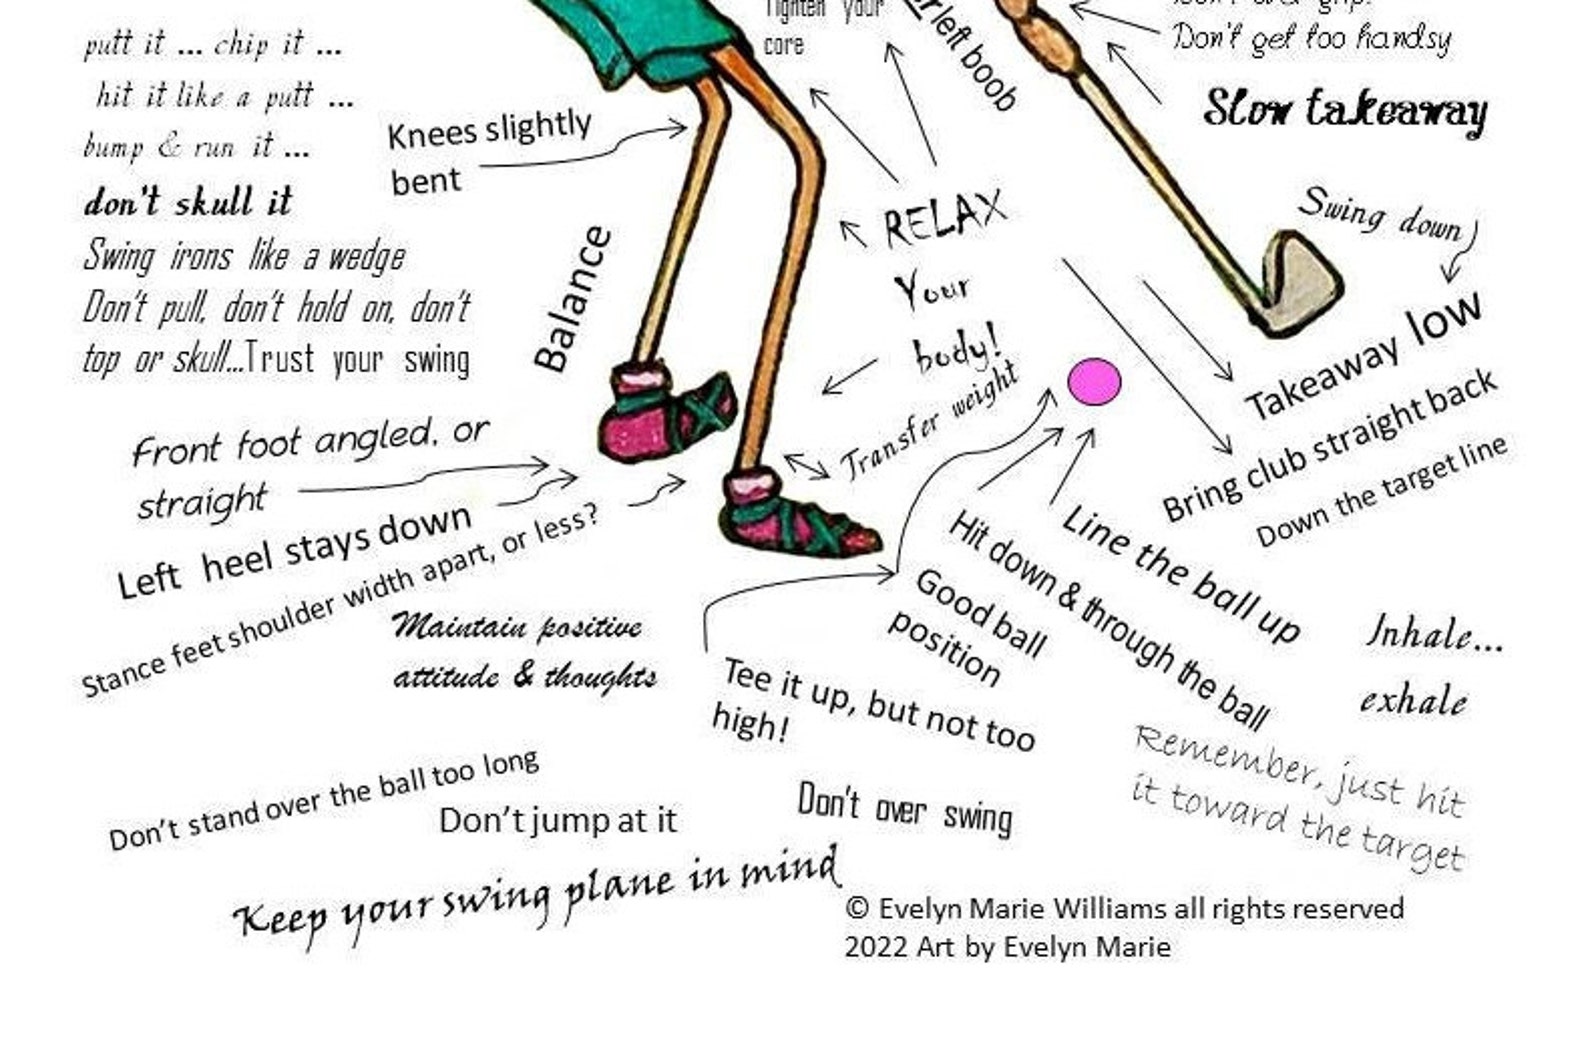 Tighten your
core
left boob
Don't get too handsy
Slow takeaway
putt it ... chip it ...
hit it like a putt ...
bump & run it ...
don't skull it
Swing irons like a wedge
Don't pull, don't hold on, don't
top or skull...Trust your swing
Knees slightly
bent
Balance
RELAX
Your
body!
Transfer weight
Swing down
Takeaway low
Bring club straight back
Down the target line
Front foot angled, or
straight
Left heel stays down
Stance feet shoulder width apart, or less?
Maintain positive
attitude & thoughts
Line the ball up
Hit down & through the ball
Good ball
position
Tee it up, but not too
high!
Inhale...
exhale
Remember, just hit
it toward the target
Don't stand over the ball too long
Don't jump at it
Don't over swing
Keep your swing plane in mind
© Evelyn Marie Williams all rights reserved
2022 Art by Evelyn Marie